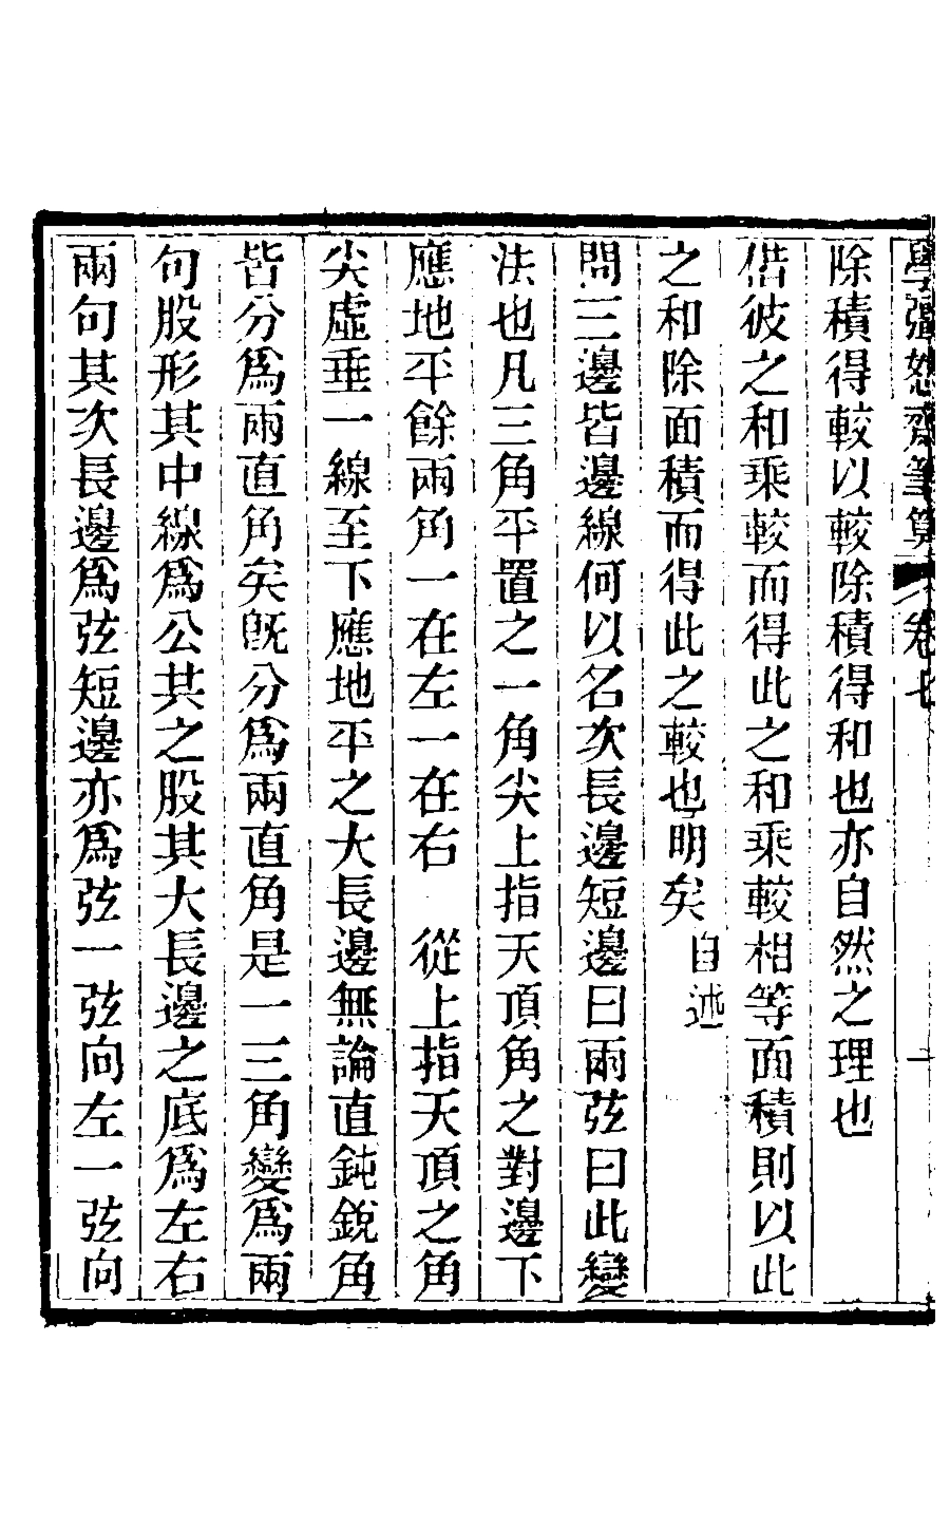 學彊恕齋筆算 卷七 一
除積得較以較除積得和也亦自然之理也
借彼之和乘較而得此之和乘較相等面積則以此
之和除面積而得此之較也明矣 自述
問三邊皆邊線何以名次長邊短邊曰兩弦曰此變
法也凡三角平置之一角尖上指天頂角之對邊下
應地平餘兩角一在左一在右 從上指天頂之角
尖虛垂一線至下應地平之大長邊無論直鈍銳角
皆分爲兩直角矣旣分爲兩直角是一三角變爲兩
句股形其中線爲公共之股其大長邊之底爲左右
兩句其次長邊爲弦短邊亦爲弦一弦向左一弦向